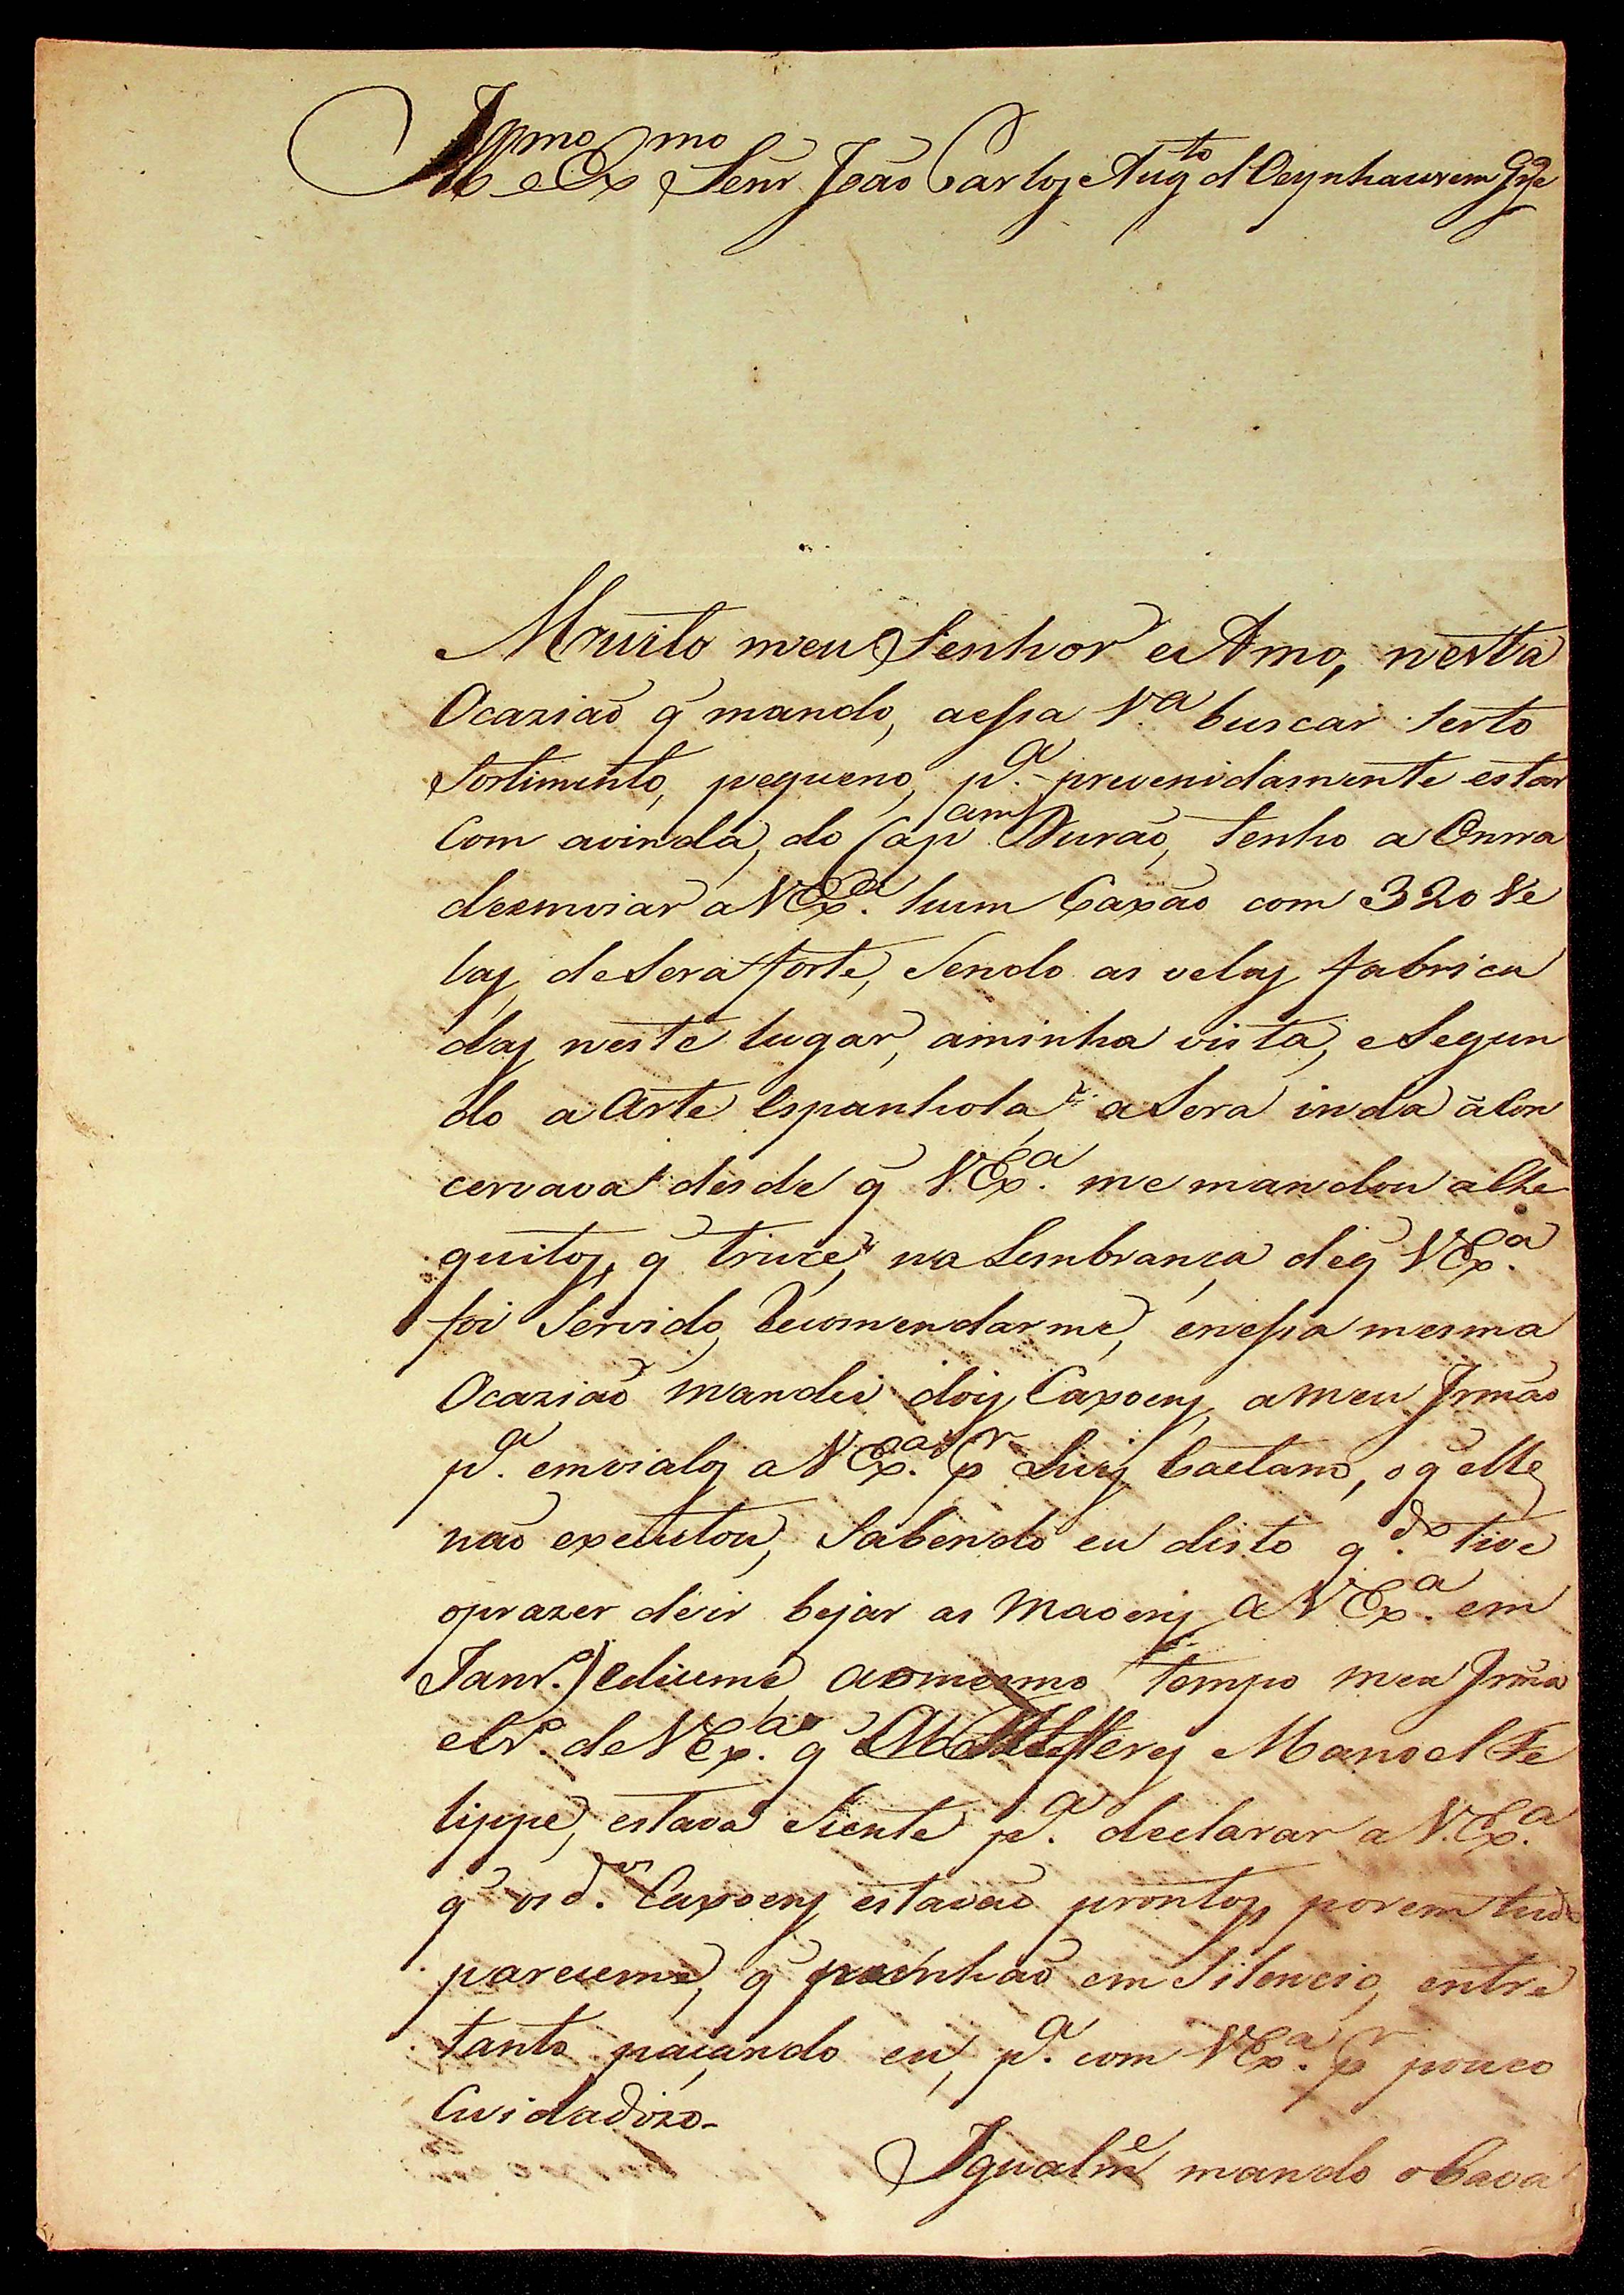 Illmo e Exmo Senr João Carlos Augto d'Oeynhausem Gre
Muito meu Senhor e Amo, nesta
Ocazião q̃ mando, aessa Va buscar serto
sortimento, pequeno, pa. prevenidamente estar
com avinda, do Capam Durão, tenho a Onrra
deenviar a VExa. hum Caxão com 320 Ve
las de Sera forte, sendo as velas fabrica
das neste lugar, aminha vista, e Segun
do a Arte Espanhola, a Sera inda a Con
cervava desde q̃ VExa. me mandou a Che
quitos, q̃ truce, na Lembrança de q̃ VExa.
foi Servido Recomendarme, enessa mesma
Ocazião mandei dois Caxoens, a meu Irmão
pa. emvialos a VExa. pr Luis Caetano, o q̃ elle
não executou, Sabendo eu disto qdo. tive
oprazer de ir bejar as Maoens a VExa. em
Janro.) ediceme aomesmo tempo meu Irmão
e Cro. de VExa. q̃ Alferes Manoel Fe
lippe, estava Siente pa. declarar a V.Exa.
q̃ os dos. Caxoens estavão prontos, porem tudo
pareceme, q̃ punhão em Silencio, entre
tanto paçando eu, pa. com VExa. pr pouco
Cuidadozo-
Igualme mando o Cava